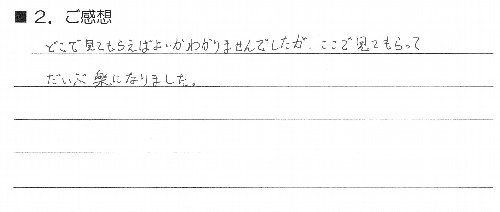 ■ 2. ご感想
どこで見てもらえばよいかわかりませんでしたが、ここで見てもらって
だいぶ楽になりました。